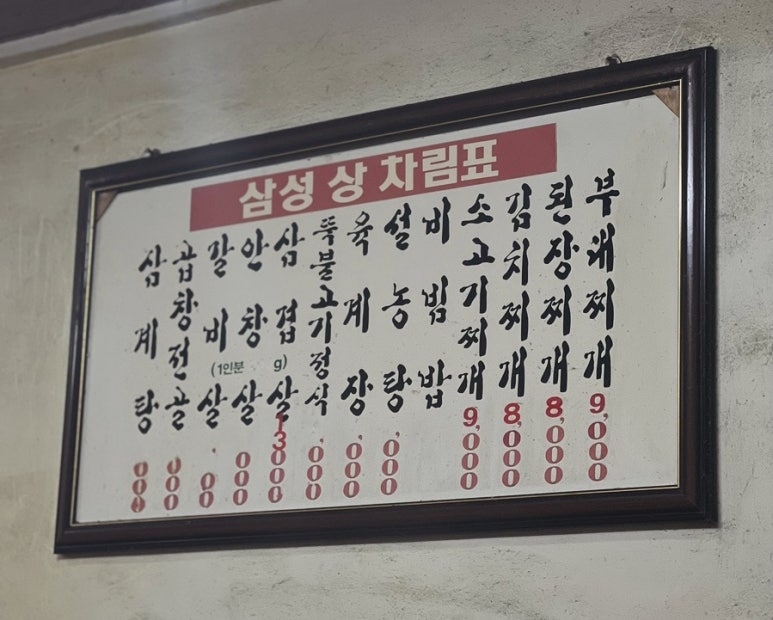 삼성 상 차림표
부대찌개 9,000
된장찌개 8,000
김치찌개 8,000
소고기찌개 9,000
비빔밥
설농탕 ,000
육계장 ,000
뚝불고기정식 ,000
삼겹살 13000
안창살 000
갈비살 00
(1인분 g)
곱창전골 000
삼계탕 000